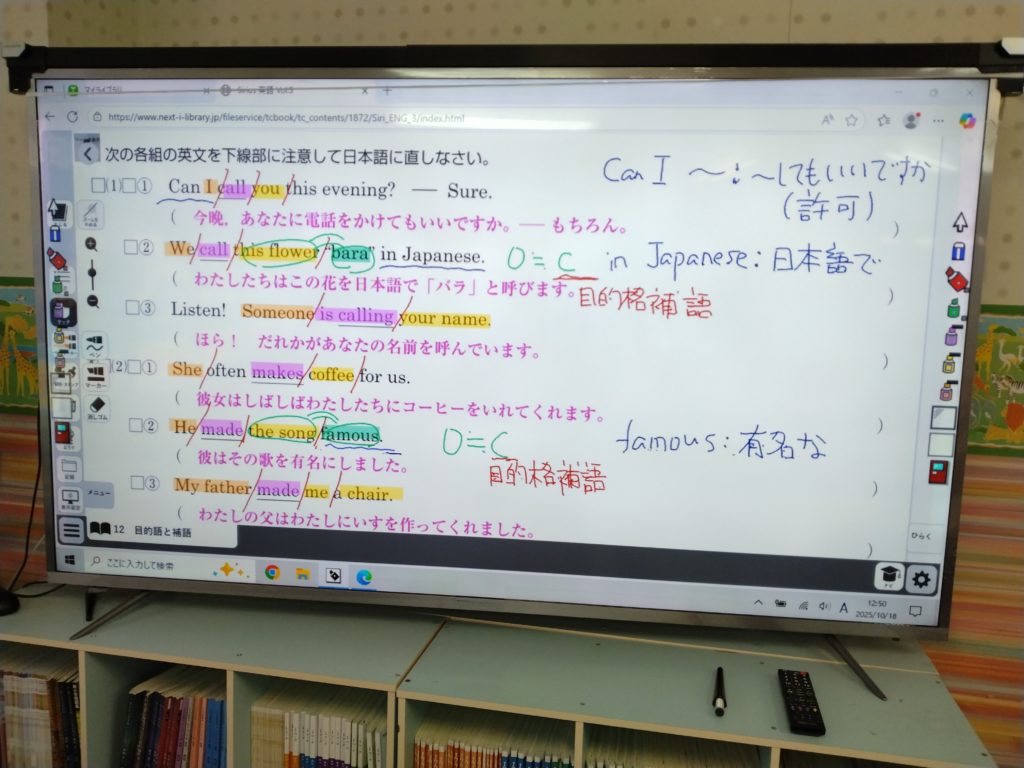 マイライブラリ
Sirius 英語 Vol.3
https://www.next-i-library.jp/fileservice/tcbook/tc_contents/1872/Siri_ENG_3/index.html
次の各組の英文を下線部に注意して日本語に直しなさい。
Can I ～ : ～してもいいですか
(許可)
□(1)□① Can I call you this evening? — Sure.
( 今晩，あなたに電話をかけてもいいですか。— もちろん。 )
□② We call this flower "bara" in Japanese.
O≒C in Japanese : 日本語で
( わたしたちはこの花を日本語で「バラ」と呼びます。 )
目的格補語
□③ Listen! Someone is calling your name.
( ほら！ だれかがあなたの名前を呼んでいます。 )
□(2)□① She often makes coffee for us.
( 彼女はしばしばわたしたちにコーヒーをいれてくれます。 )
□② He made the song famous.
O≒C famous : 有名な
( 彼はその歌を有名にしました。 )
目的格補語
□③ My father made me a chair.
( わたしの父はわたしにいすを作ってくれました。 )
ペン
マーカー
消しゴム
メニュー
ひらく
12 目的語と補語
ここに入力して検索
A
12:50
2025/10/18